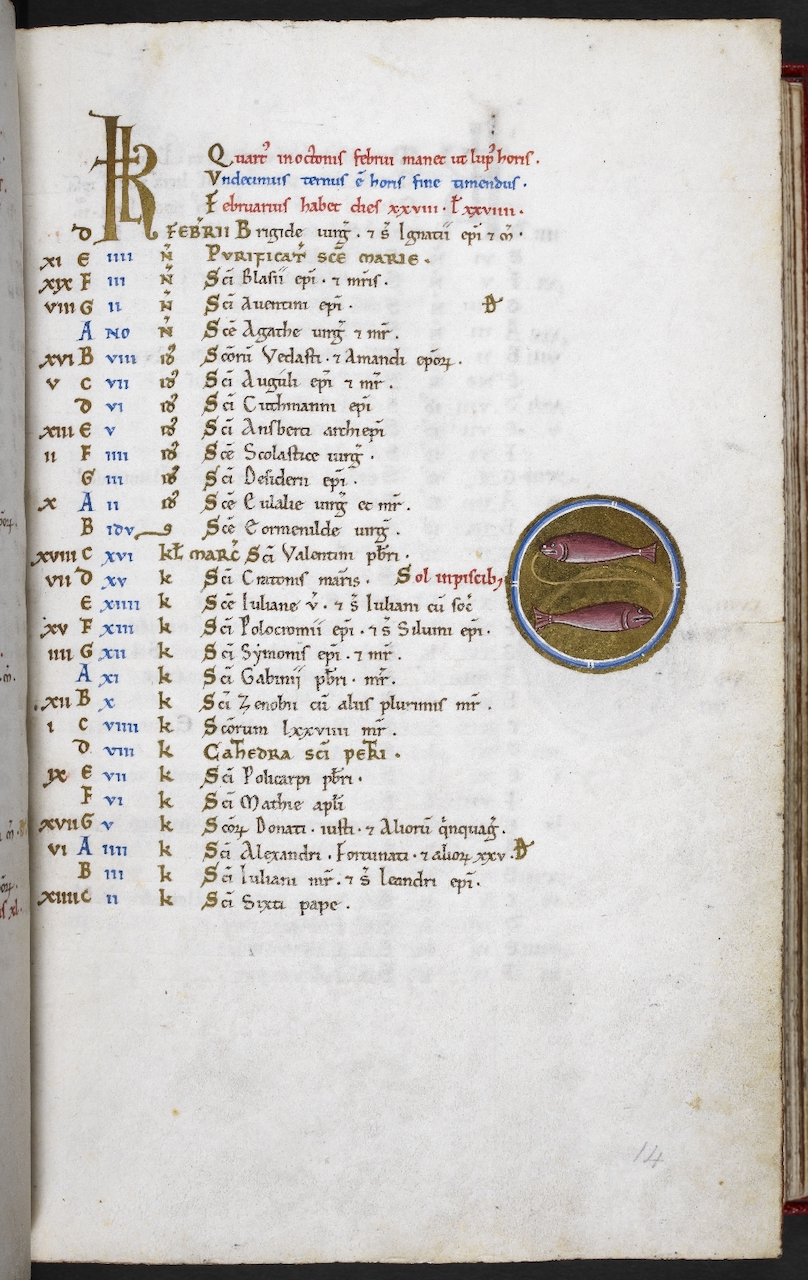 KL Quart' in octonis febrin manet ut lup' horis.
Undecimus ternus ē horis fine timendus.
Februarius habet dies xxviii. Lxxviiii.
D FEBRII Brigide uirg̃. ⁊ s̃ Ignatii epi ⁊ m̃.
xi E iiii Ñ PVRIFICAT̃ SCE MARIE.
xix F iii Ñ Sci Blasii epi. ⁊ mr̃is.
viii G ii Ñ Sci Auentini epi. D
A NO Ñ Sce Agathe uirg̃ ⁊ mr̃.
xvi B viii id Scorū Vedasti. ⁊ Amandi epoꝝ.
v C vii id Sci Auguli epi ⁊ mr̃.
D vi id Sci Cuthmanni epi
xiii E v id Sci Ansberti archiepi
ii F iiii id Sce Scolastice uirg̃.
G iii id Sci Desiderii epi.
x A ii id Sce Eulalie uirg̃ et mr̃.
B IDV 9 Sce Eormenilde uirg̃.
xviii C xvi KL MARC̃ Sci Valentini pbri.
vii D xv k Sci Cratonis maris. Sol in piscib;
E xiiii k Sce Iuliane v̓. ⁊ s̃ Iuliani cū soc̃
xv F xiii k Sci Polocronii epi. ⁊ s̃ Siluini epi.
iiii G xii k Sci Symonis epi. ⁊ mr̃.
A xi k Sci Gabinii pbri. mr̃.
xii B x k Sci Zenobii cū aliis plurimis mr̃.
i C viiii k Scorum lxxviiii mr̃.
D viii k CATHEDRA SCI PETRI.
ix E vii k Sci Policarpi pbri.
F vi k Sci Mathie apli
xvii G v k Scoꝝ Donati. iusti. ⁊ Aliorū q̃nquag̃.
vi A iiii k Sci Alexandri. Fortunati. ⁊ alioꝝ xxv. D
B iii k Sci Iuliani mr̃. ⁊ s̃ leandri epi.
xiiii C ii k Sci Sixti pape.
14